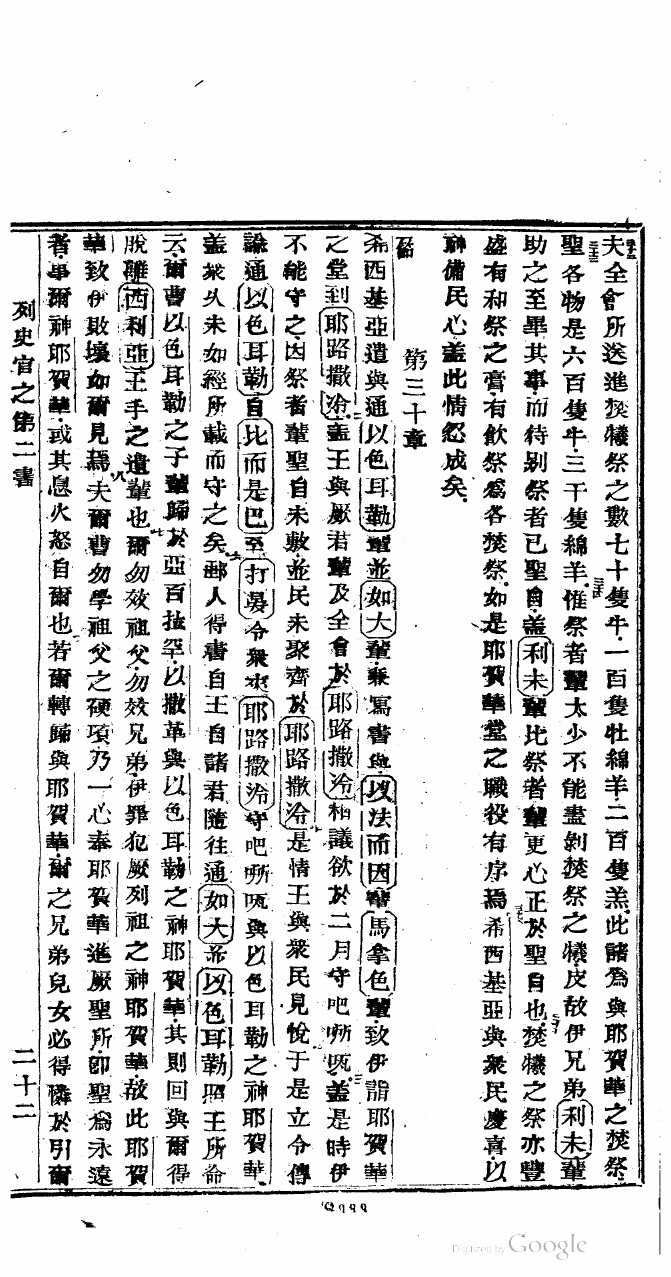 夫全會所送進焚犧祭之數七十隻牛一百隻牡綿羊二百隻羔此諸爲與耶賀華之焚祭
聖各物是六百隻牛三千隻綿羊惟祭者輩太少不能盡剝焚祭之犧皮故伊兄弟利未輩
助之至畢其事而待別祭者已聖自蓋利未輩比祭者輩更心正於聖自也焚犧之祭亦豐
盛有和祭之膏有飲祭爲各焚祭如是耶賀華堂之職役有序焉希西基亞與衆民慶喜以
神備民心蓋此情忽成矣
第三十章
希西基亞遣與通以色耳勒輩並如大輩兼寫書與以法而因輩馬拿色輩致伊詣耶賀華
之堂到耶路撒冷蓋王與厥君輩及全會於耶路撒冷相議欲於二月守吧㗭㕸蓋是時伊
不能守之因祭者輩聖自未敷並民未聚齊於耶路撒冷是情王與衆民見悅于是立令傳
諭通以色耳勒自比而是巴至打晏令衆來耶路撒冷守吧㗭㕸與以色耳勒之神耶賀華
蓋衆久未如經所載而守之矣郵人得書自王自諸君隨往通如大並以色耳勒照王所命
云爾曹以色耳勒之子輩歸於亞百拉罕以撒革與以色耳勒之神耶賀華其則回與爾得
脫離西利亞王手之遺輩也爾勿效祖父勿效兄弟伊罪犯厥列祖之神耶賀華故此耶賀
華致伊敗壞如爾見焉夫爾曹勿學祖父之硬項乃一心奉耶賀華進厥聖所卽聖爲永遠
者事爾神耶賀華或其息火怒自爾也若爾轉歸與耶賀華爾之兄弟兒女必得憐於引爾
列史官之第二書
二十二
Digitized by Google